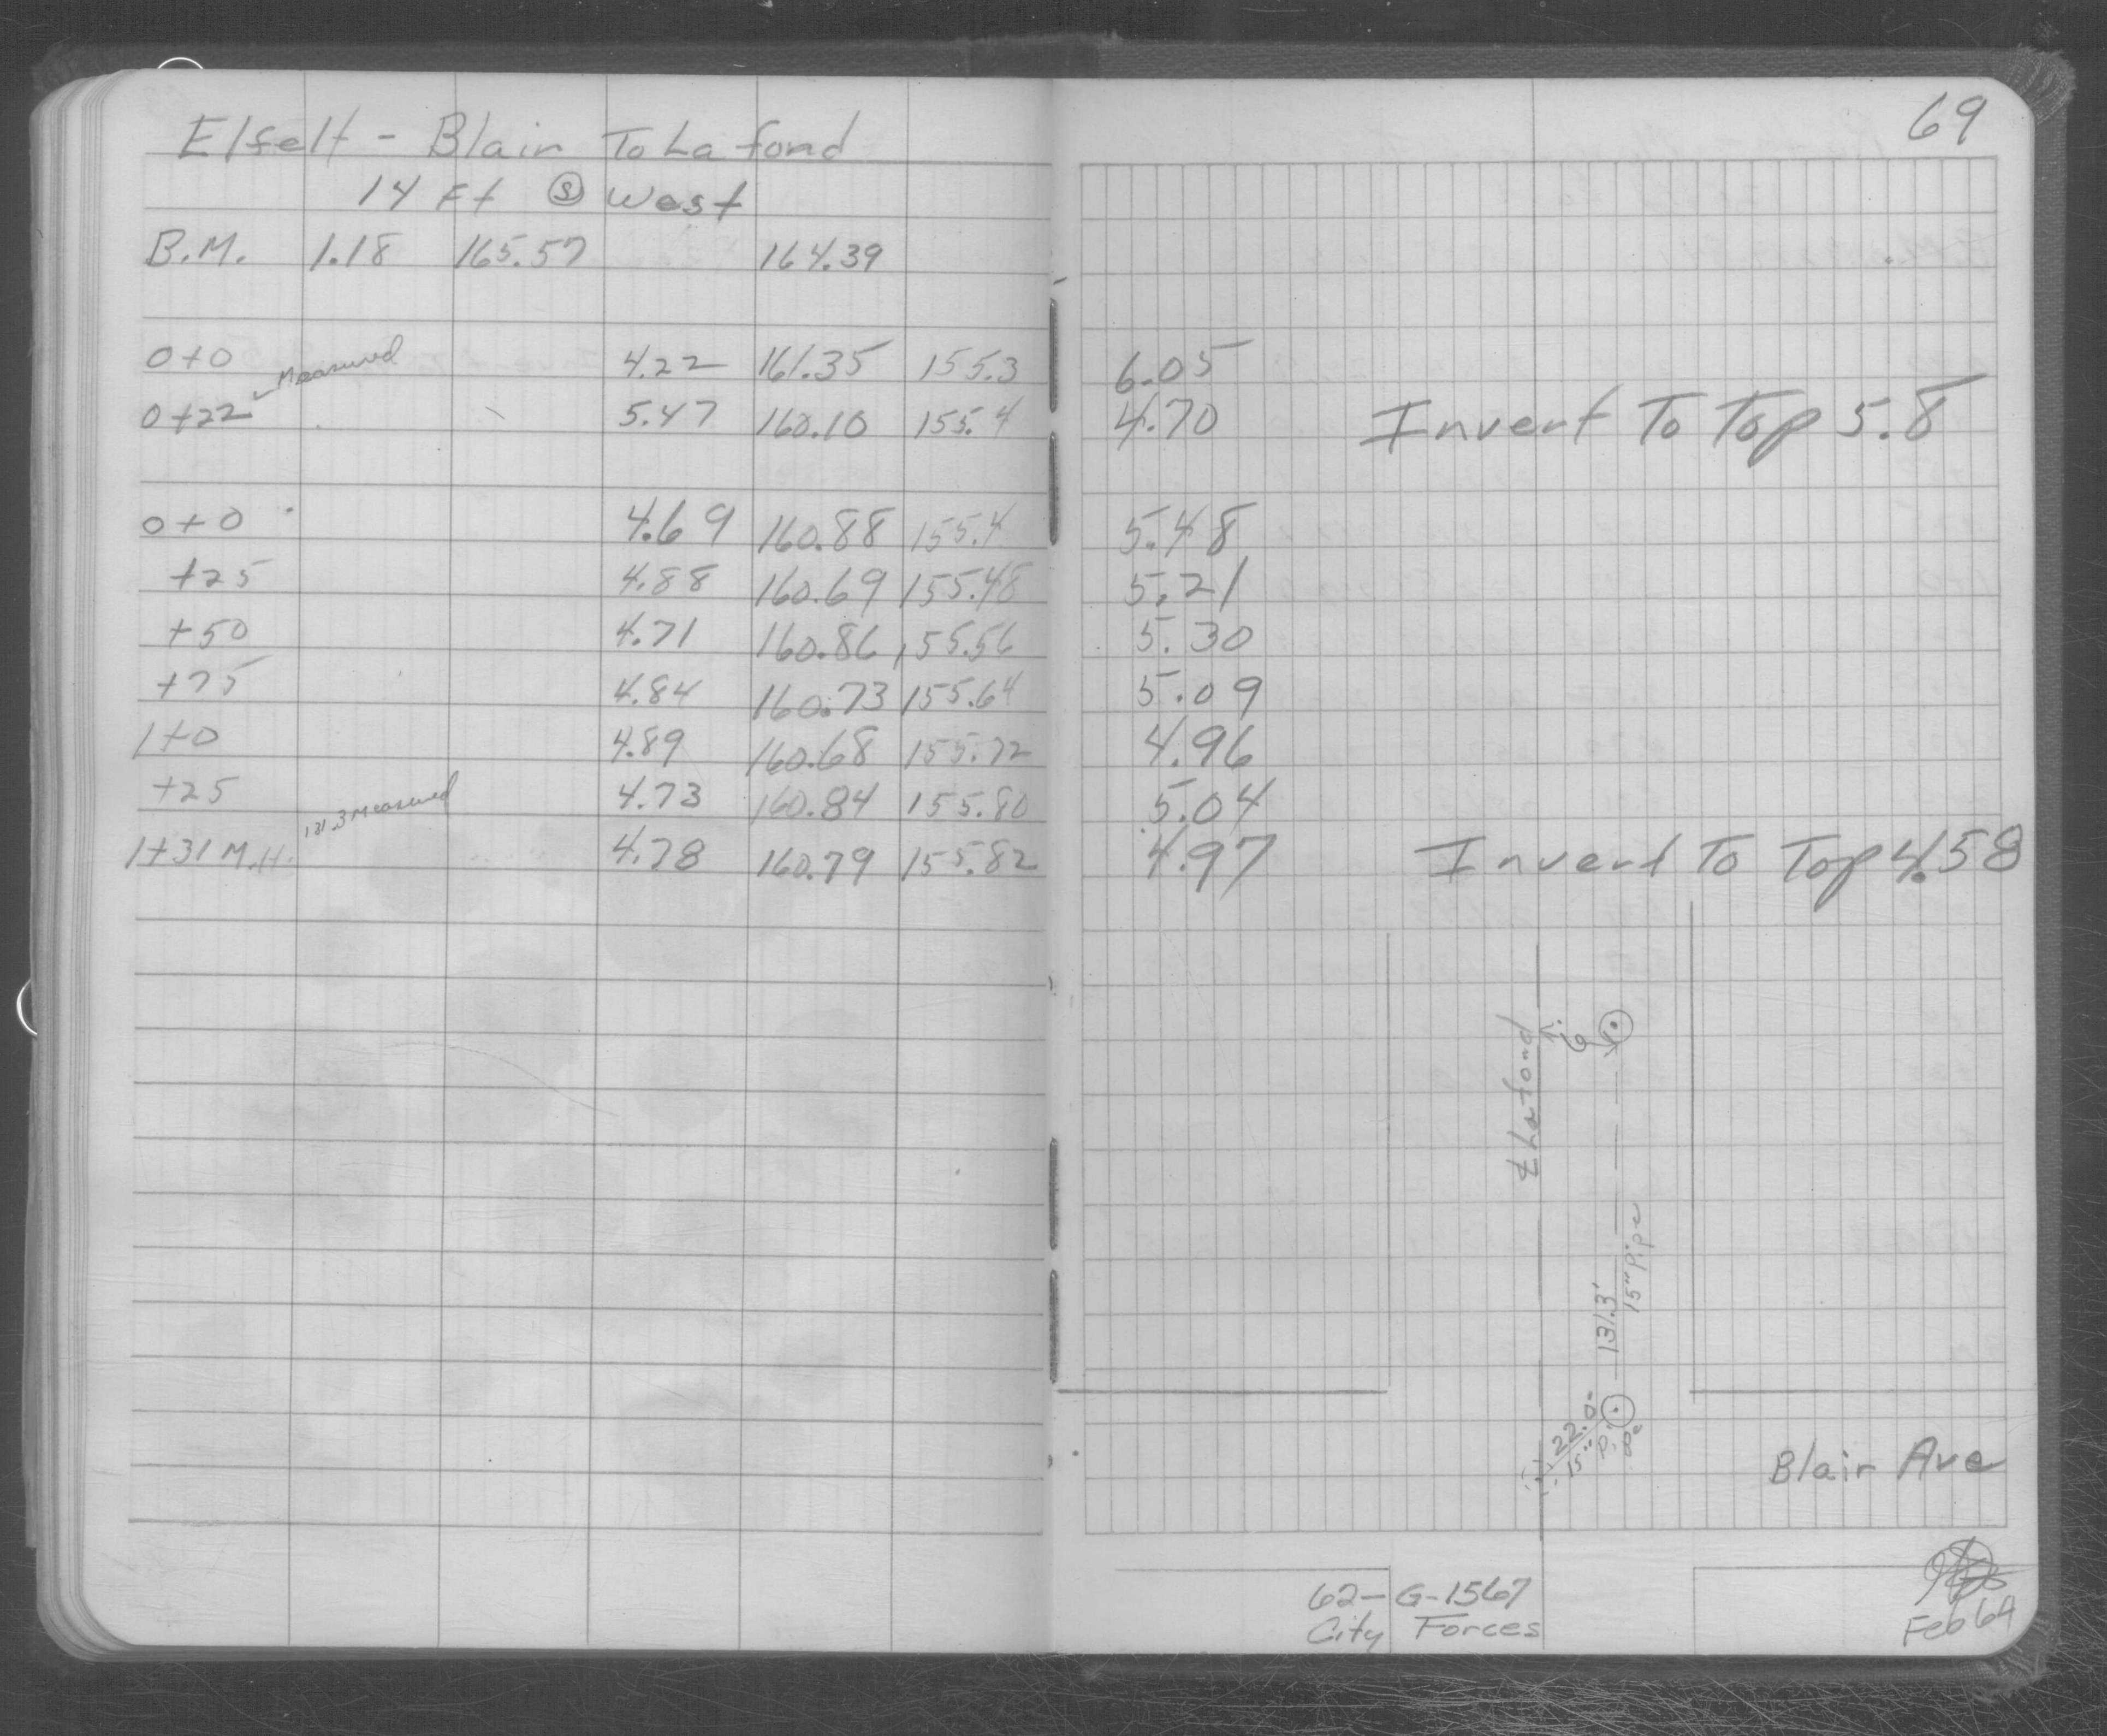 69
Elfelt - Blair To Lafond
14 Ft Ⓢ West
B.M. 1.18 165.57 164.39
0+0 4.22 161.35 155.3 6.05
Measured
0+22 5.47 160.10 155.4 4.70 Invert To Top 5.8
0+0 4.69 160.88 155.4 5.48
+25 4.88 160.69 155.48 5.21
+50 4.71 160.86 155.56 5.30
+75 4.84 160.73 155.64 5.09
1+0 4.89 160.68 155.72 4.96
+25 4.73 160.84 155.80 5.04
131.3 Measured
1+31 M.H. 4.78 160.79 155.82 4.97 Invert To Top 4.58
℄ Lafond
6
131.3'
15" Pipe
22.0'
15" Pipe
Blair Ave
62-G-1567
City Forces
Feb 64